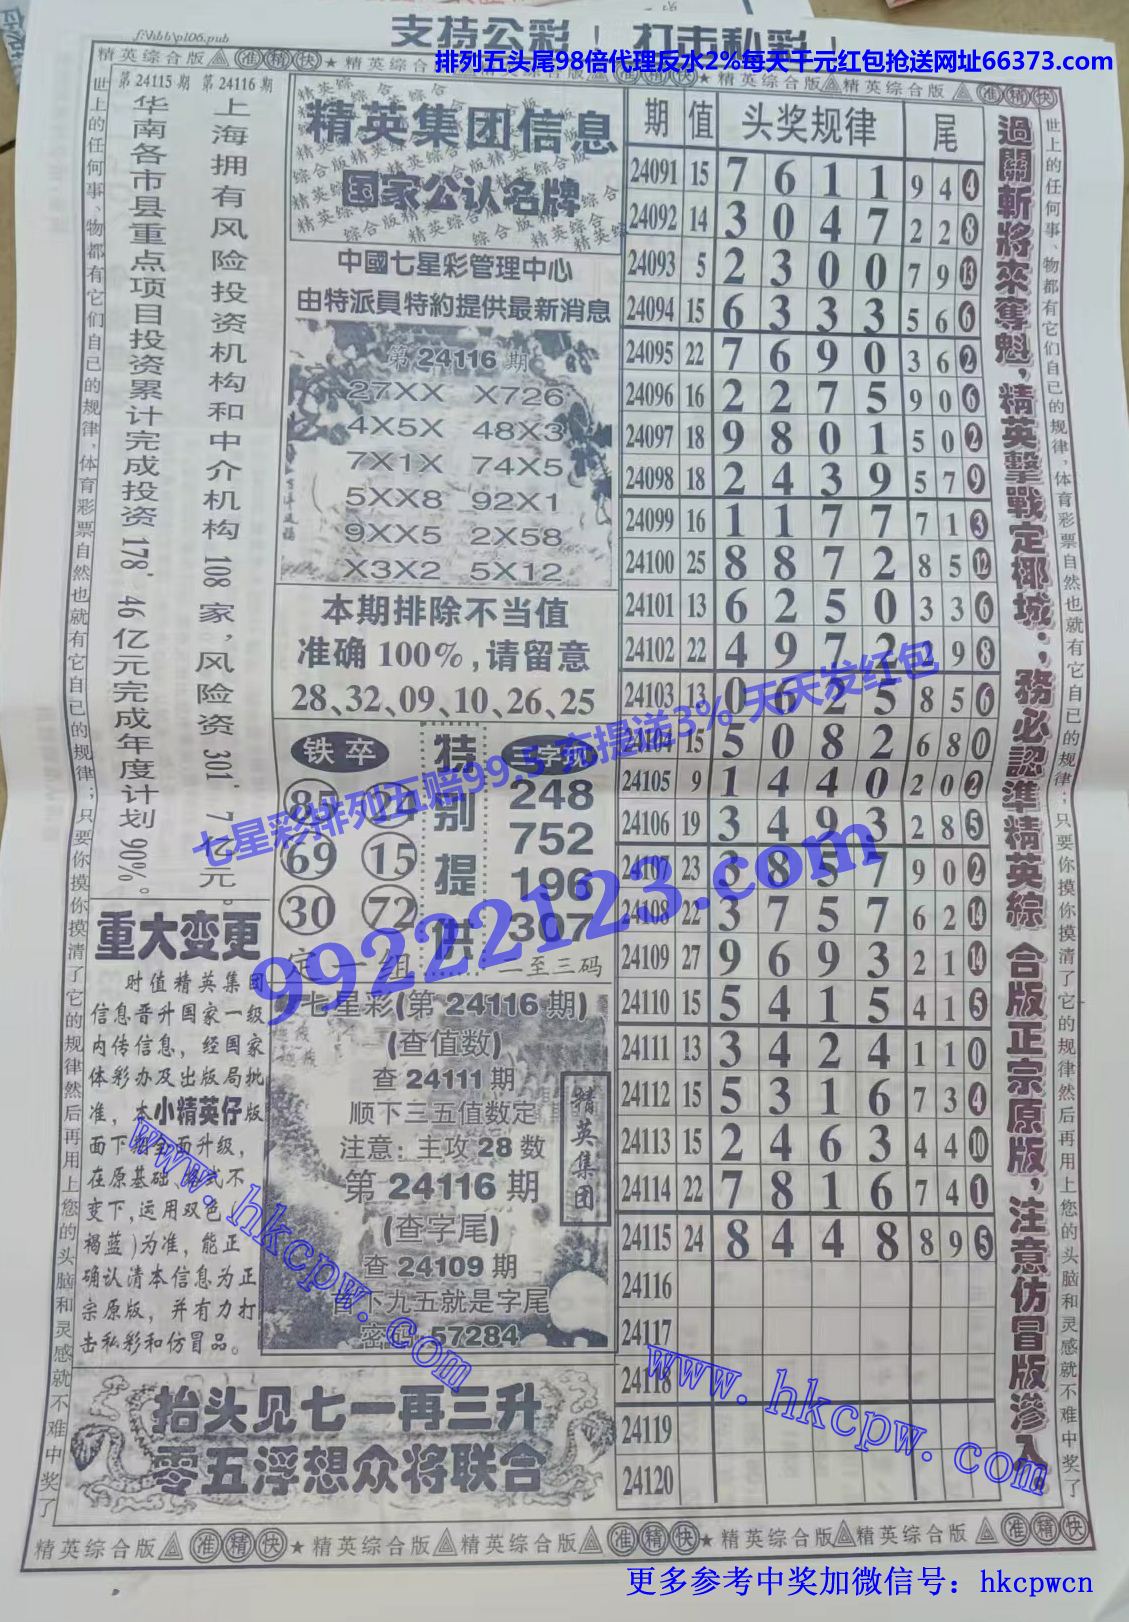 f:\hbb\p106.pub
支持公彩！打击私彩！
排列五头尾98倍代理反水2%每天千元红包抢送网址66373.com
精英综合版 准精快 ★ 精英综合版
精英综合版 精英综合版 准精快
世上的任何事、物都有它们自己的规律，体育彩票自然也就有它自己的规律；只要你摸你摸清了它的规律然后再用上您的头脑和灵感就不难中奖了
第 24115 期 第 24116 期
上海拥有风险投资机构和中介机构 108 家，风险资 301．7 亿元。
华南各市县重点项目投资累计完成投资 178．46 亿元完成年度计划 90%。
重大变更
时值精英集团
信息晋升国家一级
内传信息，经国家
体彩办及出版局批
准，本小精英仔版
面下期全面升级，
在原基础、格式不
变下,运用双色(
褐蓝)为准，能正
确认清本信息为正
宗原版，并有力打
击私彩和仿冒品。
精英集团信息
国家公认名牌
中國七星彩管理中心
由特派員特約提供最新消息
第 24116 期
27XX X726
4X5X 48X3
7X1X 74X5
5XX8 92X1
9XX5 2X58
X3X2 5X12
本期排除不当值
准确 100%,请留意
28、32、09、10、26、25
铁卒
85 24
69 15
30 72
定一组
特别提供
三字现
248
752
196
307
二至三码
七星彩(第 24116 期)
(查值数)
查 24111 期
顺下三五值数定
注意: 主攻 28 数
第 24116 期
(查字尾)
查 24109 期
留下九五就是字尾
密码: 57284
精英集团
抬头见七一再三升
零五浮想众将联合
期 值 头奖规律 尾
24091 15 7 6 1 1 9 4 4
24092 14 3 0 4 7 2 2 8
24093 5 2 3 0 0 7 9 13
24094 15 6 3 3 3 5 6 6
24095 22 7 6 9 0 3 6 2
24096 16 2 2 7 5 9 0 6
24097 18 9 8 0 1 5 0 2
24098 18 2 4 3 9 5 7 9
24099 16 1 1 7 7 7 1 3
24100 25 8 8 7 2 8 5 12
24101 13 6 2 5 0 3 3 6
24102 22 4 9 7 2 2 9 8
24103 13 0 6 2 5 8 5 6
24104 15 5 0 8 2 6 8 0
24105 9 1 4 4 0 2 0 2
24106 19 3 4 9 3 2 8 5
24107 23 3 8 5 7 9 0 2
24108 22 3 7 5 7 6 2 14
24109 27 9 6 9 3 2 1 14
24110 15 5 4 1 5 4 1 5
24111 13 3 4 2 4 1 1 0
24112 15 5 3 1 6 7 3 4
24113 15 2 4 6 3 4 4 10
24114 22 7 8 1 6 7 4 1
24115 24 8 4 4 8 8 9 5
24116
24117
24118
24119
24120
過關斬將來奪魁，精英擊戰定椰城；務必認準精英綜 合版正宗原版，注意仿冒版滲入。
世上的任何事、物都有它们自己的规律，体育彩票自然也就有它自己的规律；只要你摸你摸清了它的规律然后再用上您的头脑和灵感就不难中奖了
七星彩排列五赔99.5 充提送3% 天天发红包
99222123.com
www.hkcpw.com
www.hkcpw.com
精英综合版 准精快 ★ 精英综合版 精英综合版 准精快 ★ 精英综合版 精英综合版 准精快
更多参考中奖加微信号：hkcpwcn